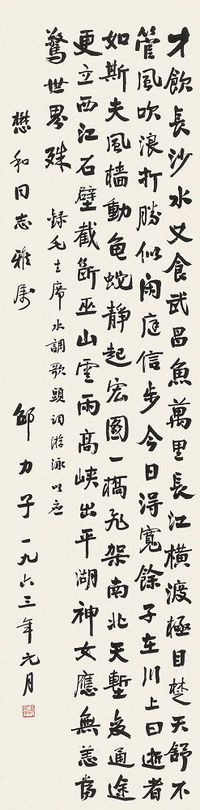 才飲長沙水又食武昌魚萬里長江橫渡極目楚天舒不
管風吹浪打勝似閑庭信步今日得寬餘子在川上曰逝者
如斯夫風檣動龜蛇靜起宏圖一橋飛架南北天塹變通途
更立西江石壁截斷巫山雲雨高峽出平湖神女應無恙當
驚世界殊
錄毛主席水調歌頭詞游泳以應
懋和同志雅屬
邵力子一九六三年元月